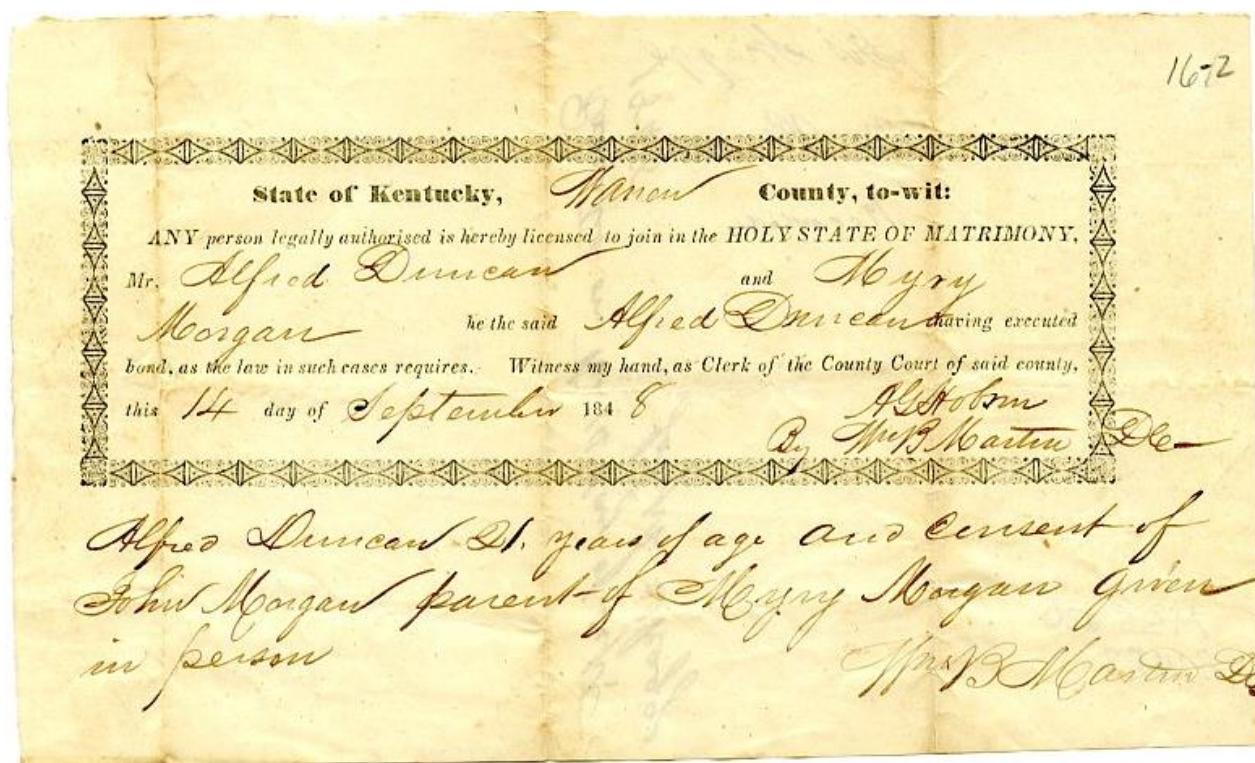 1672
State of Kentucky, Warren County, to-wit:
ANY person legally authorised is hereby licensed to join in the HOLY STATE OF MATRIMONY,
Mr. Alfred Duncan and Myry
Morgan he the said Alfred Duncan having executed
bond, as the law in such cases requires. Witness my hand, as Clerk of the County Court of said county,
this 14 day of September 1848
A G Hobson
By Wm B Martin DC
Alfred Duncan 21. years of age and consent of
John Morgan parent of Myry Morgan given
in person
Wm B Martin DC